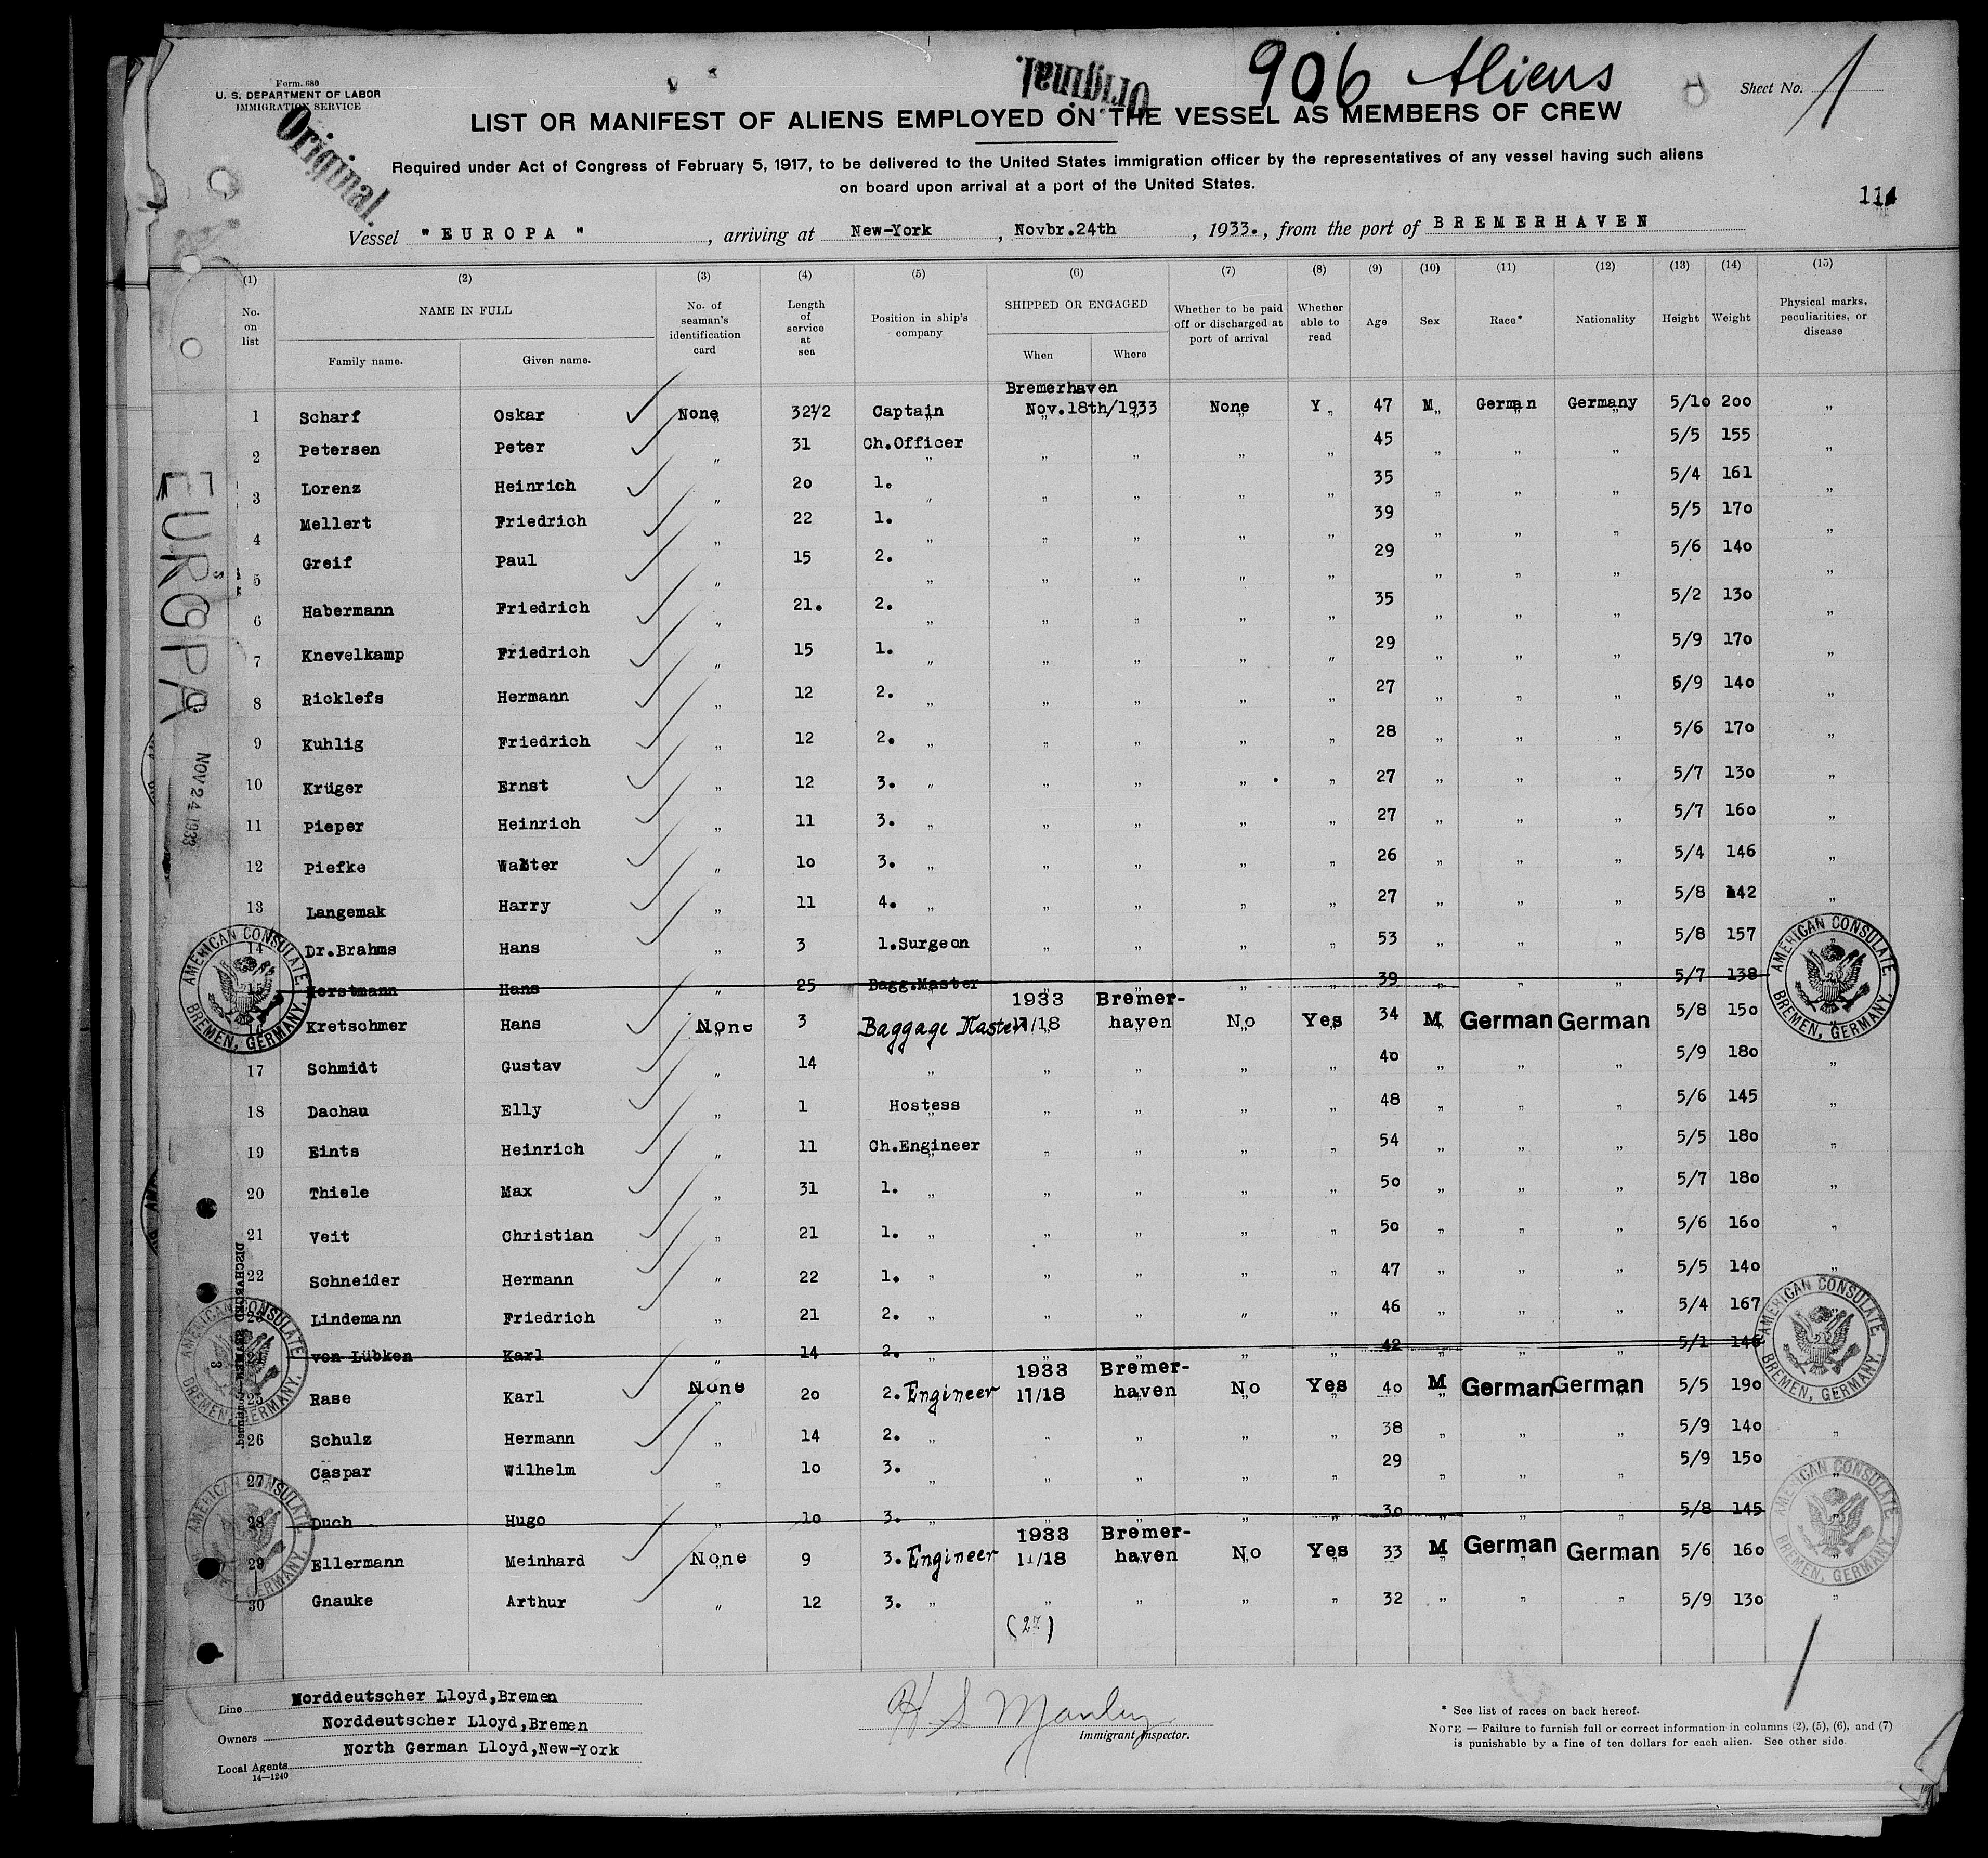 906 Aliens
Original.
Form 680
U. S. DEPARTMENT OF LABOR
IMMIGRATION SERVICE
Original.
Sheet No. 1
LIST OR MANIFEST OF ALIENS EMPLOYED ON THE VESSEL AS MEMBERS OF CREW
Required under Act of Congress of February 5, 1917, to be delivered to the United States immigration officer by the representatives of any vessel having such aliens
on board upon arrival at a port of the United States.
Vessel "EUROPA", arriving at New-York, Novbr.24th, 1933., from the port of BREMERHAVEN
(1) (2) (3) (4) (5) (6) (7) (8) (9) (10) (11) (12) (13) (14) (15)
No. on list NAME IN FULL No. of seaman's identification card Length of service at sea Position in ship's company SHIPPED OR ENGAGED Whether to be paid off or discharged at port of arrival Whether able to read Age Sex Race* Nationality Height Weight Physical marks, peculiarities, or disease
Family name. Given name. When Where
Bremerhaven
1 Scharf Oskar None 32½ Captain Nov.18th/1933 None Y 47 M German Germany 5/10 200 "
2 Petersen Peter " 31 Ch.Officer " " " " 45 " " " 5/5 155 "
3 Lorenz Heinrich " 20 1. " " " " " 35 " " " 5/4 161 "
4 Mellert Friedrich " 22 1. " " " " " 39 " " " 5/5 170 "
5 Greif Paul " 15 2. " " " " " 29 " " " 5/6 140 "
6 Habermann Friedrich " 21. 2. " " " " " 35 " " " 5/2 130 "
7 Knevelkamp Friedrich " 15 1. " " " " " 29 " " " 5/9 170 "
8 Ricklefs Hermann " 12 2. " " " " " 27 " " " 5/9 140 "
9 Kuhlig Friedrich " 12 2. " " " " " 28 " " " 5/6 170 "
10 Krüger Ernst " 12 3. " " " " " 27 " " " 5/7 130 "
11 Pieper Heinrich " 11 3. " " " " " 27 " " " 5/7 160 "
12 Piefke Walter " 10 3. " " " " " 26 " " " 5/4 146 "
13 Langemak Harry " 11 4. " " " " " 27 " " " 5/8 142 "
14 Dr.Brahms Hans " 3 1.Surgeon " " " " 53 " " " 5/8 157
15 Horstmann Hans " 25 Bagg.Master " " " " 39 " " " 5/7 138
1933 Bremer-
16 Kretschmer Hans None 3 Baggage Master 11/18 haven No Yes 34 M German German 5/8 150
17 Schmidt Gustav " 14 " " " " " 40 " " " 5/9 180 "
18 Dachau Elly " 1 Hostess " " " " 48 " " " 5/6 145 "
19 Eints Heinrich " 11 Ch.Engineer " " " " 54 " " " 5/5 180 "
20 Thiele Max " 31 1. " " " " " 50 " " " 5/7 180 "
21 Veit Christian " 21 1. " " " " " 50 " " " 5/6 160 "
22 Schneider Hermann " 22 1. " " " " " 47 " " " 5/5 140 "
23 Lindemann Friedrich " 21 2. " " " " " 46 " " " 5/4 167
24 von Lübken Karl " 14 2. " " " " " 42 " " " 5/1 146
1933 Bremer-
25 Rase Karl None 20 2. Engineer 11/18 haven No Yes 40 M German German 5/5 190
26 Schulz Hermann " 14 2. " " " " " 38 " " " 5/9 140 "
27 Caspar Wilhelm " 10 3. " " " " " 29 " " " 5/9 150 "
28 Duch Hugo " 10 3. " " " " " 30 " " " 5/8 145 "
1933 Bremer-
29 Ellermann Meinhard None 9 3. Engineer 11/18 haven No Yes 33 M German German 5/6 160 "
30 Gnauke Arthur " 12 3. " " " " " 32 " " " 5/9 130 "
(27)
EUROPA
NOV 24 1933
AMERICAN CONSULATE BREMEN, GERMANY.
AMERICAN CONSULATE BREMEN, GERMANY.
AMERICAN CONSULATE BREMEN, GERMANY.
AMERICAN CONSULATE BREMEN, GERMANY.
AMERICAN CONSULATE BREMEN, GERMANY.
AMERICAN CONSULATE BREMEN, GERMANY.
Line Norddeutscher Lloyd,Bremen
Owners Norddeutscher Lloyd,Bremen
Local Agents North German Lloyd,New-York
14—1240
H S Manley
Immigrant Inspector.
* See list of races on back hereof.
NOTE — Failure to furnish full or correct information in columns (2), (5), (6), and (7)
is punishable by a fine of ten dollars for each alien. See other side.